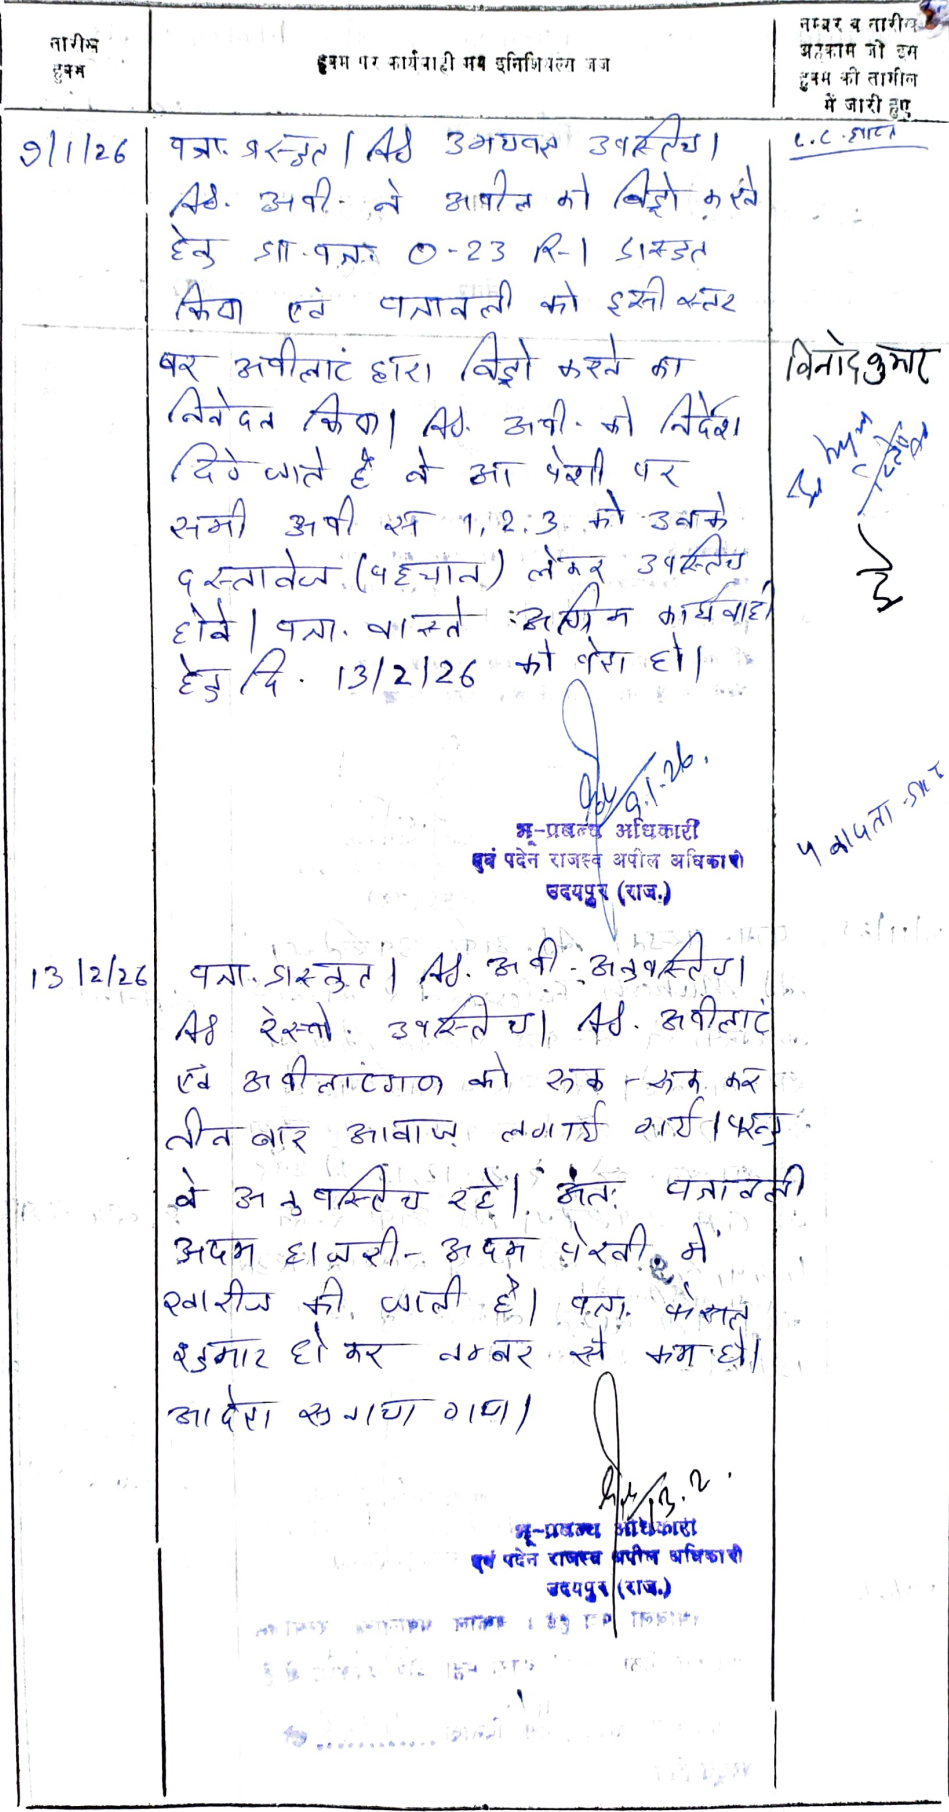 तारीख
हुक्म
हुक्म पर कार्यवाही मय इनिशियल्स जज
नम्बर व तारीख
अहकाम जो इस
हुक्म की तामील
में जारी हुए
9/1/26
पत्रा. प्रस्तुत। Ad उभयपक्ष उपस्थित।
Ad. अपी. ने अपील को विड्रो करने
हेतु प्रा. पत्र 0-23 R-1 प्रस्तुत
किया एवं पत्रावली को इसी स्तर
पर अपीलांट द्वारा विड्रो करने का
निवेदन किया। Ad. अपी. को निर्देश
दिये जाते है वे आ पेशी पर
सभी अपी सं 1, 2. 3 को उनके
दस्तावेज (पहचान) लेकर उपस्थित
होवे। पत्रा. वास्ते अग्रिम कार्यवाही
हेतु दि. 13/2/26 को पेश हो।
विनोद कुमार
9.1.26.
भू-प्रबन्ध अधिकारी
एवं पदेन राजस्व अपील अधिकारी
उदयपुर (राज.)
13/2/26
पत्रा. प्रस्तुत। Ad. अपी. अनुपस्थित।
Ad रेस्पो. उपस्थित। Ad. अपीलांट
एवं अपीलांटगण को रूक-रूक कर
तीन बार आवाज लगाई गई। परन्तु
वे अनुपस्थित रहे। अतः पत्रावली
अदम हाजरी-अदम पैरवी में
खारीज की जाती है। पत्रा. फैसल
शुमार हो कर नम्बर से कम हो।
आदेश सुनाया गया।
13.2.
भू-प्रबन्ध अधिकारी
एवं पदेन राजस्व अपील अधिकारी
उदयपुर (राज.)